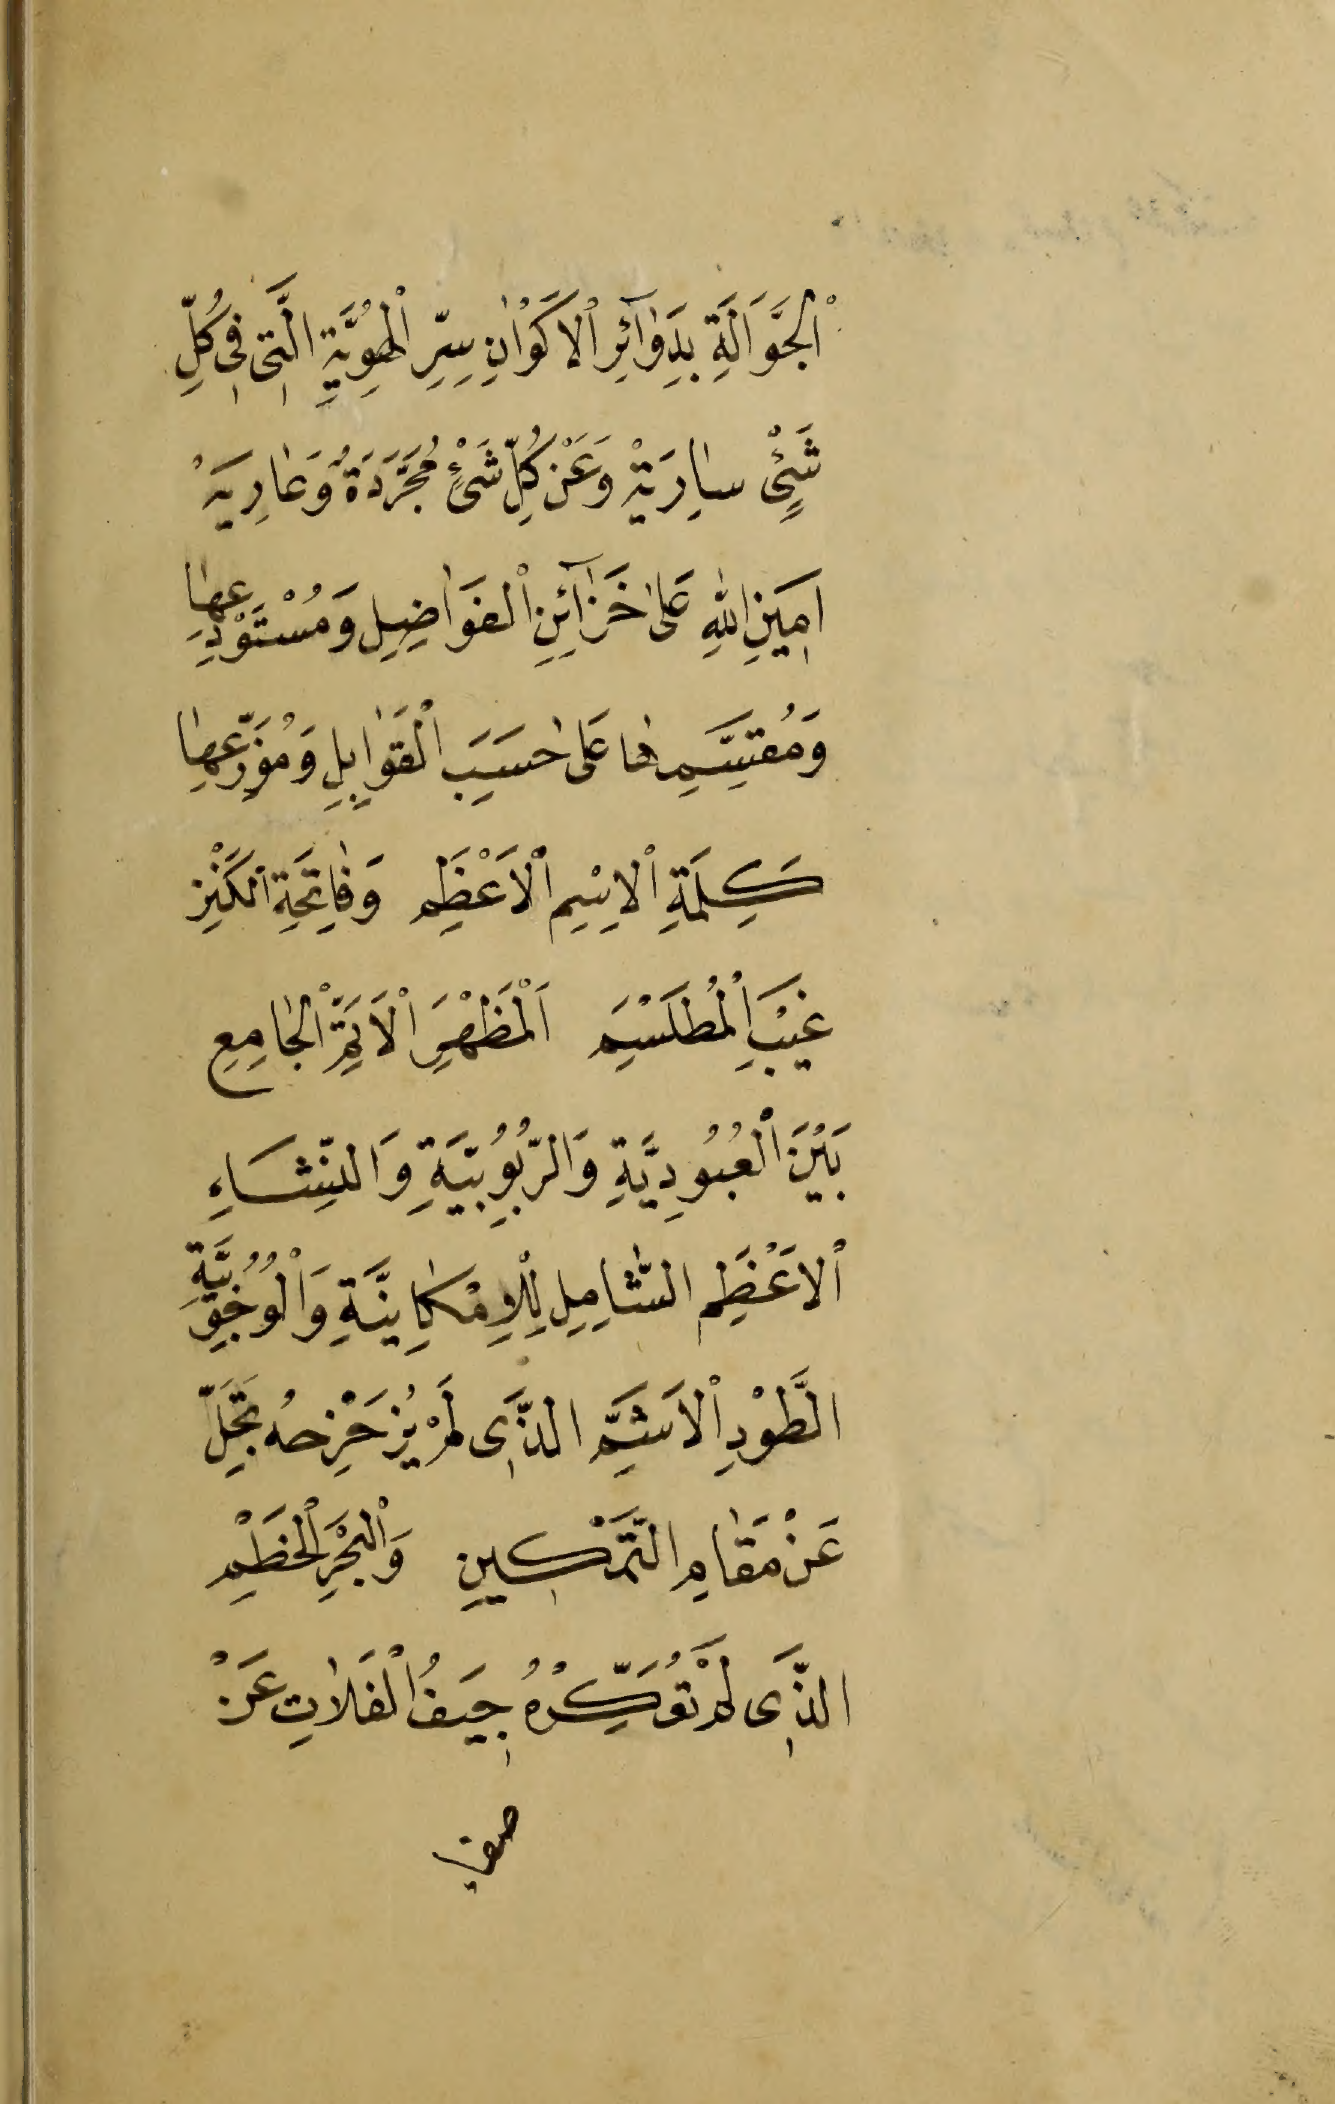 اَلْجَوَّالَةِ بِدَوَآئِرِ اْلاَكْوَانِ سِرِّ الْهُوِيَّةِ الَّتِى فِى كُلِّ
شَيْءٍ سَارِيَةْ وَعَنْ كُلِّ شَيْءٍ مُجَرَّدَةٌ وَعَارِيَهْ
اَمِينِ اللهِ عَلٰى خَزَآئِنِ الْفَوَاضِلِ وَمُسْتَوْدَعِهَا
وَمُقَسِّمِهَا عَلٰى حَسَبِ الْقَوَابِلِ وَمُوَزِّعِهَا
كَلِمَةِ اْلاِسْمِ اْلاَعْظَمِ وَفَاتِحَةِ الْكَنْزِ
غَيْبِ الْمُطَلْسَمِ اَلْمَظْهَرِ اْلاَتَمِّ الْجَامِعِ
بَيْنَ الْعُبُودِيَّةِ وَالرُّبُوبِيَّةِ وَالنِّشَاءِ
اْلاَعْظَمِ الشَّامِلِ لِلْاِمْكَانِيَّةِ وَالْوُجُوبِيَّةِ
الطَّوْدِ اْلاَشَمِّ الَّذِى لَمْ يُزَحْزِحْهُ تَجَلِّ
عَنْ مَقَامِ التَّمْكِينِ وَالْبَحْرِ الْخَطْمِ
الَّذِى لَمْ تُعَكِّرْهُ جِيَفُ الْغَفَلَاتِ عَنْ
صفا